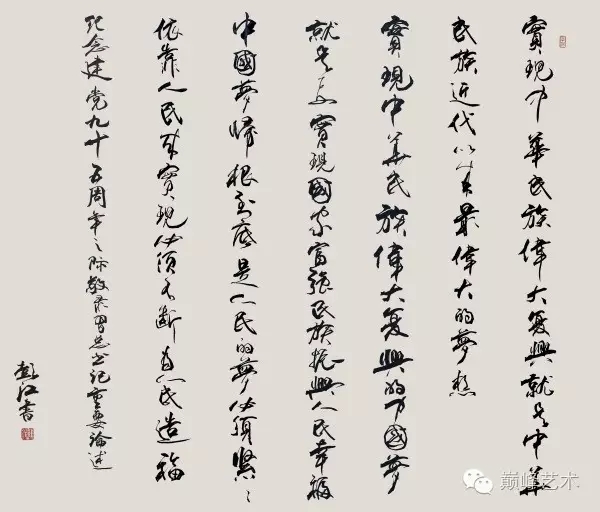 實現中華民族偉大复興就是中華
民族近代以来最偉大的夢想
實現中華民族偉大复興的中國夢
就是要實現國家富強民族振興人民幸福
中國夢歸根到底是人民的夢必須緊〻
依靠人民来實現必須不断為人民造福
纪念建党九十五周年之际敬录習总书记重要論述
彭江書
巅峰艺术